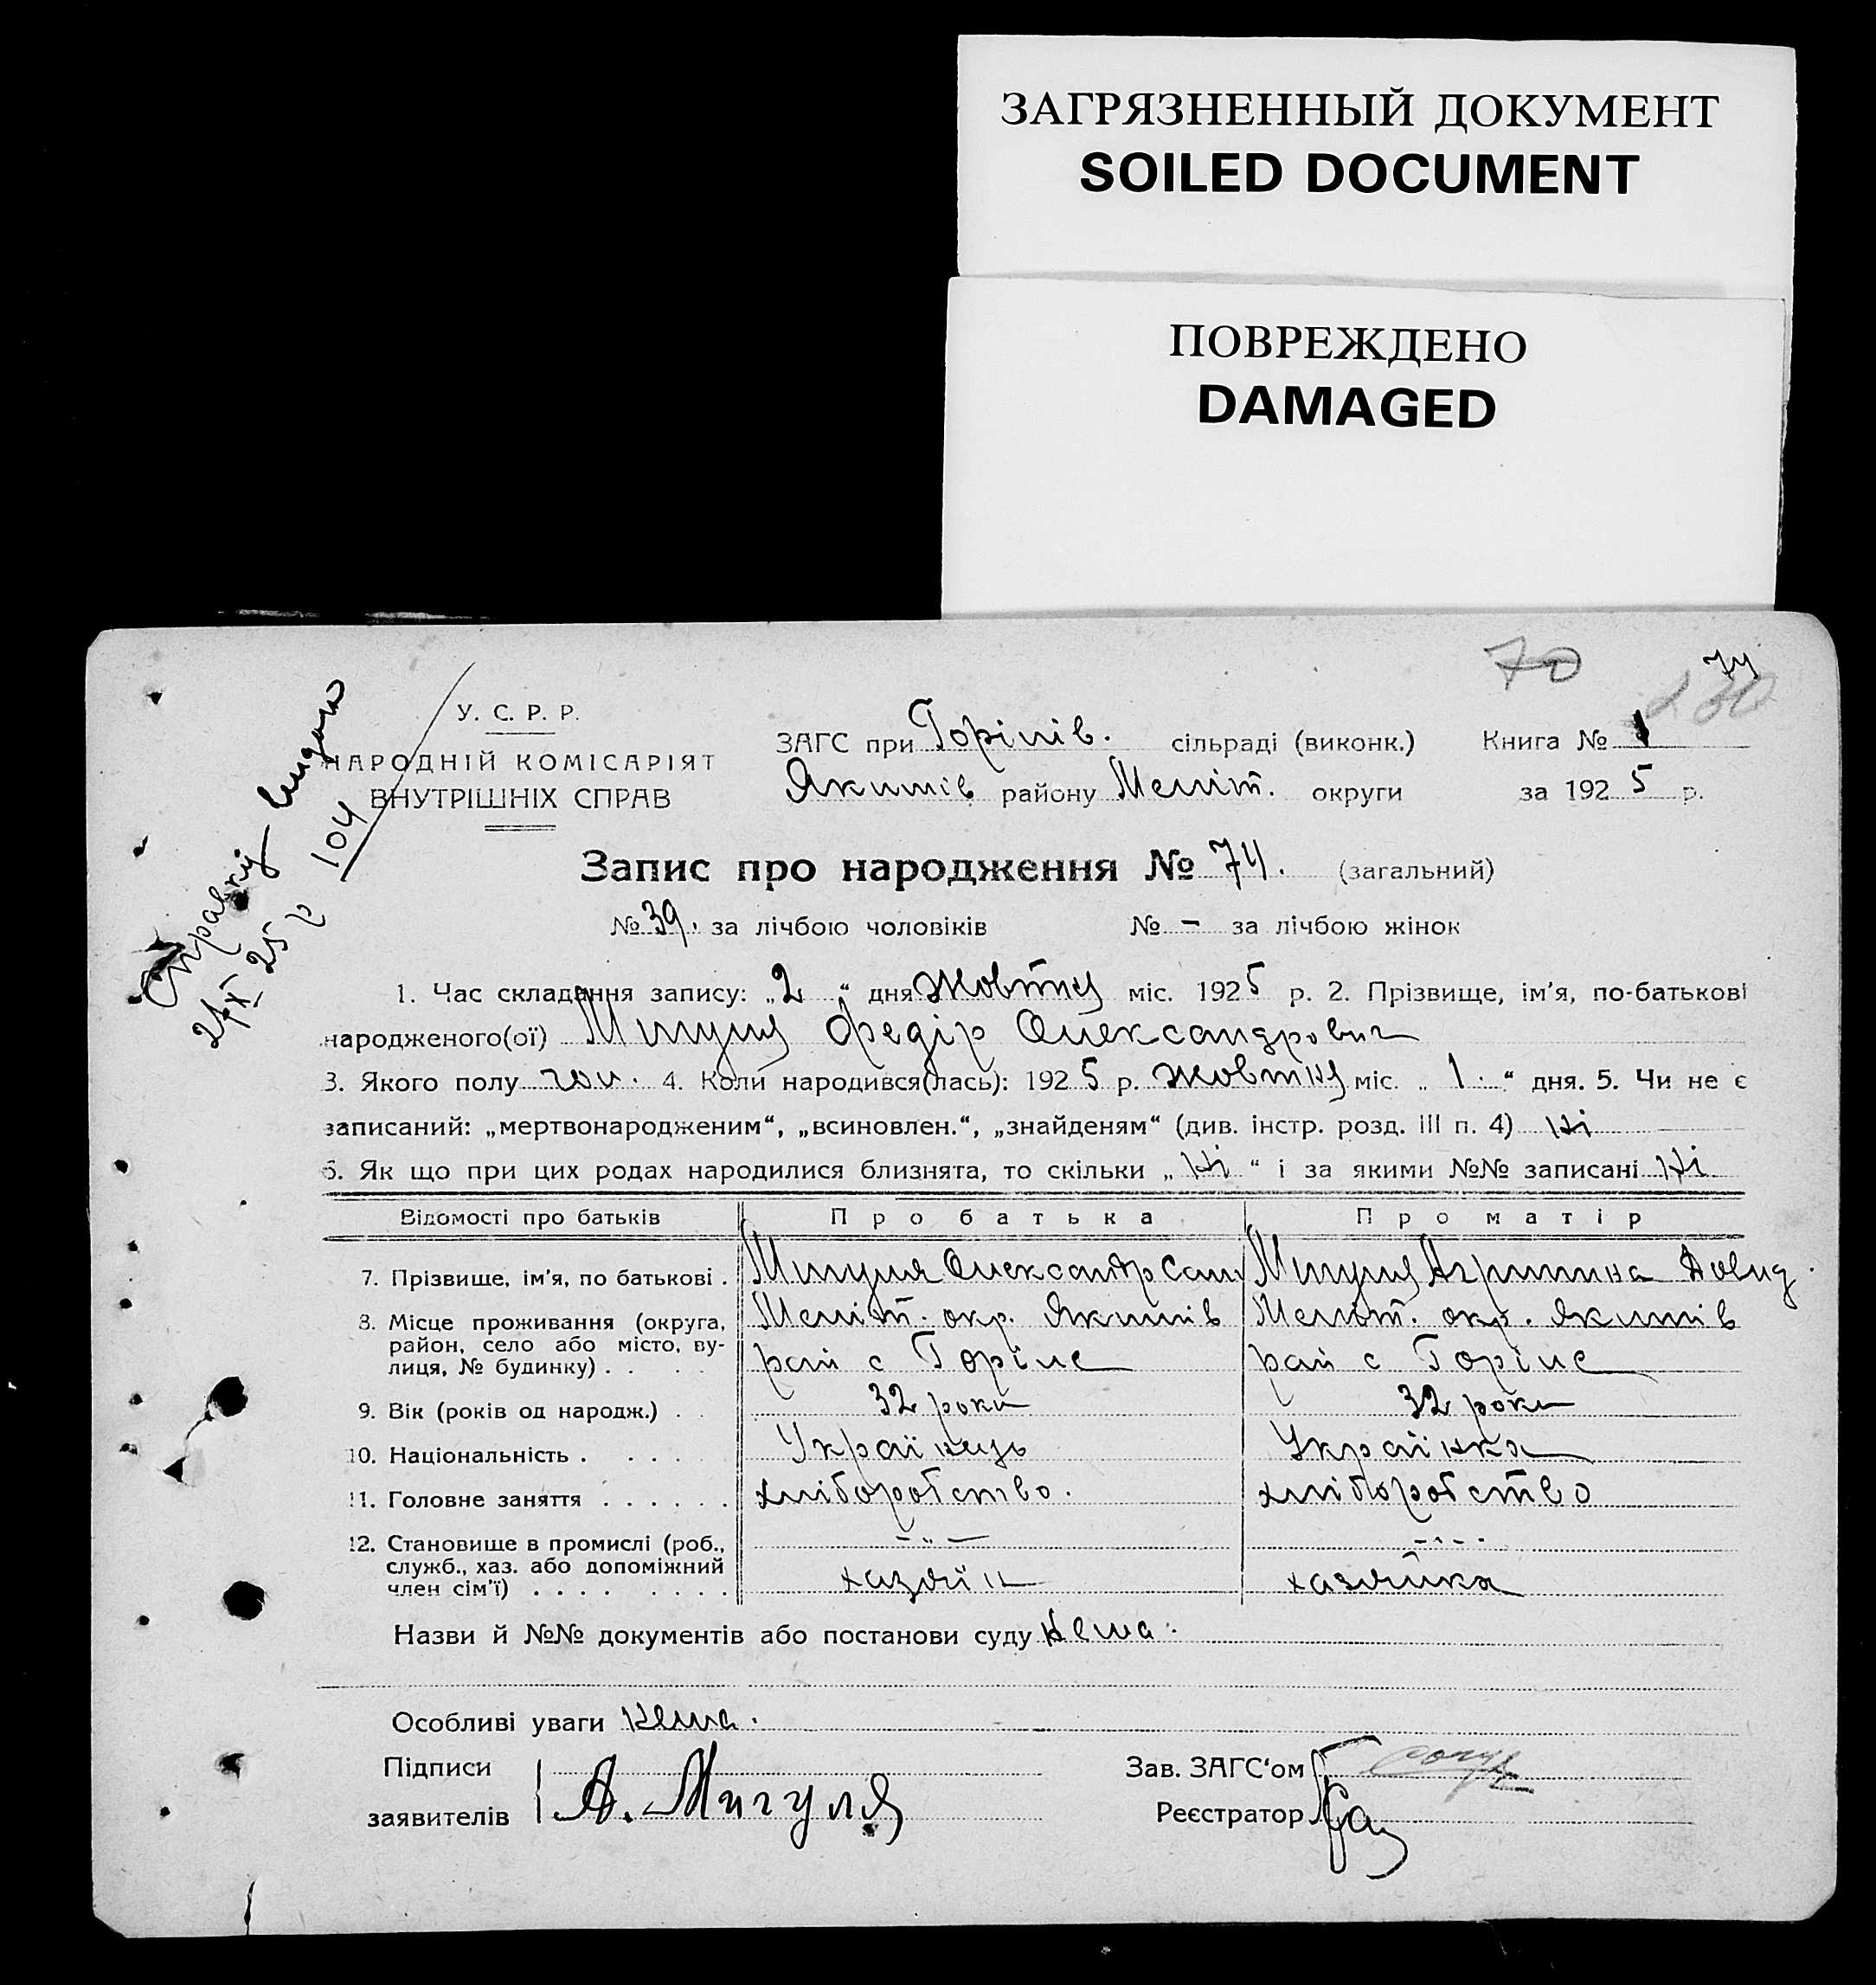 ЗАГРЯЗНЕННЫЙ ДОКУМЕНТ
SOILED DOCUMENT
ПОВРЕЖДЕНО
DAMAGED
70 74
Справку видано
2/XI 25 р 104
У. С. Р. Р.
НАРОДНІЙ КОМІСАРІЯТ
ВНУТРІШНІХ СПРАВ
ЗАГС при Горілів. сільраді (виконк.) Книга № 1
Якимів району Меліт. округи за 1925 р.
Запис про народження № 74. (загальний)
№ 39. за лічбою чоловіків № – за лічбою жінок
1. Час складання запису: „2“ дня Жовтня міс. 1925 р. 2. Прізвище, ім'я, по-батькові
народженого(ої) Мигуля Федір Олександрович
3. Якого полу чол. 4. Коли народився(лась): 1925 р. жовтня міс. „1.“ дня. 5. Чи не є
записаний: „мертвонародженим“, „всиновлен.“, „знайденям“ (див. інстр. розд. III п. 4) Ні
6. Як що при цих родах народилися близнята, то скільки „Ні“ і за якими №№ записані Ні
Відомості про батьків Про батька Про матір
7. Прізвище, ім'я, по батькові . Мигуля Олександр Сам Мигуля Агрипина Довид.
8. Місце проживання (округа, Меліт. окр. Якимів Меліт. окр. Якимів
район, село або місто, ву-
лиця, № будинку) . . рай с Горіле рай с Горіле
9. Вік (років од народж.) . . 32 роки 32 роки
10. Національність . . . . . Українець Українка
11. Головне заняття . . . . . . хліборобство. хліборобство
12. Становище в промислі (роб., – „ – – „ –
служб., хаз. або допоміжний
член сім'ї) . . . . . . . . хазяїн хазяйка
Назви й №№ документів або постанови суду Нема.
Особливі уваги Нема.
Підписи Зав. ЗАГС'ом
заявителів А. Мигуля Реєстратор